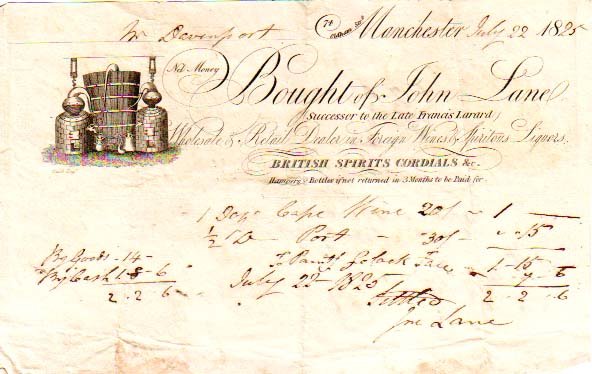 Mr Davenport
74 Oldham Strt Manchester July 22 1825
Net Money
Bought of John Lane
(Successor to the Late Francis Larard)
Wholesale & Retail Dealer in Foreign Wines & Spiritous Liquors,
BRITISH SPIRITS CORDIALS &c.
Hampers & Bottles if not returned in 3 Months to be Paid for
1 Doz Cape Wine 20/ - 1 -
1/2 D Port - 30/ - - 15
1 - 15
By Goods - 14 -
By Cash 1 - 8 - 6
7 - 6
2 - 2 - 6
July 22 1825
2 - 2 - 6
Settled
Jno Lane